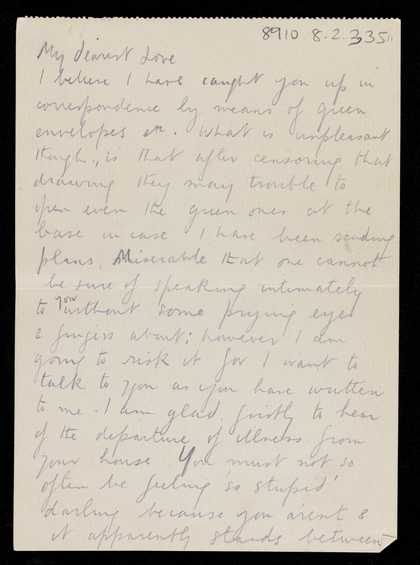 8910 8.2.335
My dearest Love
I believe I have caught you up in
correspondence by means of green
envelopes etc. What is unpleasant
though, is that after censoring that
drawing they may trouble to
open even the green ones at the
base in case I have been sending
plans. Miserable that one cannot
be sure of speaking intimately
to you without some prying eyes
& fingers about; however I am
going to risk it for I want to
talk to you as you have written
to me. I am glad, firstly to hear
of the departure of illness from
your house. You must not so
often be feeling so 'stupid'
darling because you arent &
it apparently stands between